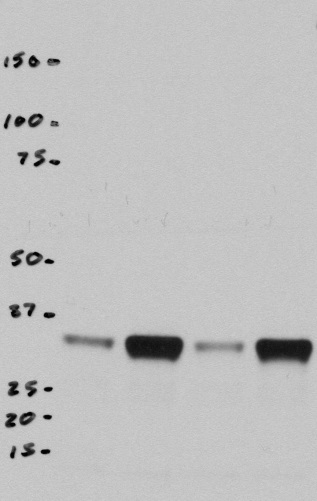 150
100
75
50
37
25
20
15